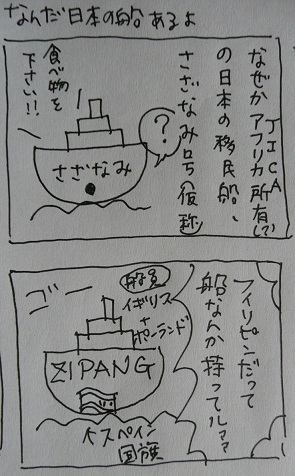 なんだ日本の船あるよ
JICA
なぜかアフリカ所有(?)
の日本の移民船、
さざなみ号(仮称)
?
食べ物を
下さい!!
さざなみ
フィリピンだって
船なんか持ってルァァ
船員
イギリス
+
ポーランド
ゴー
ZIPANG
大スペイン
国旗